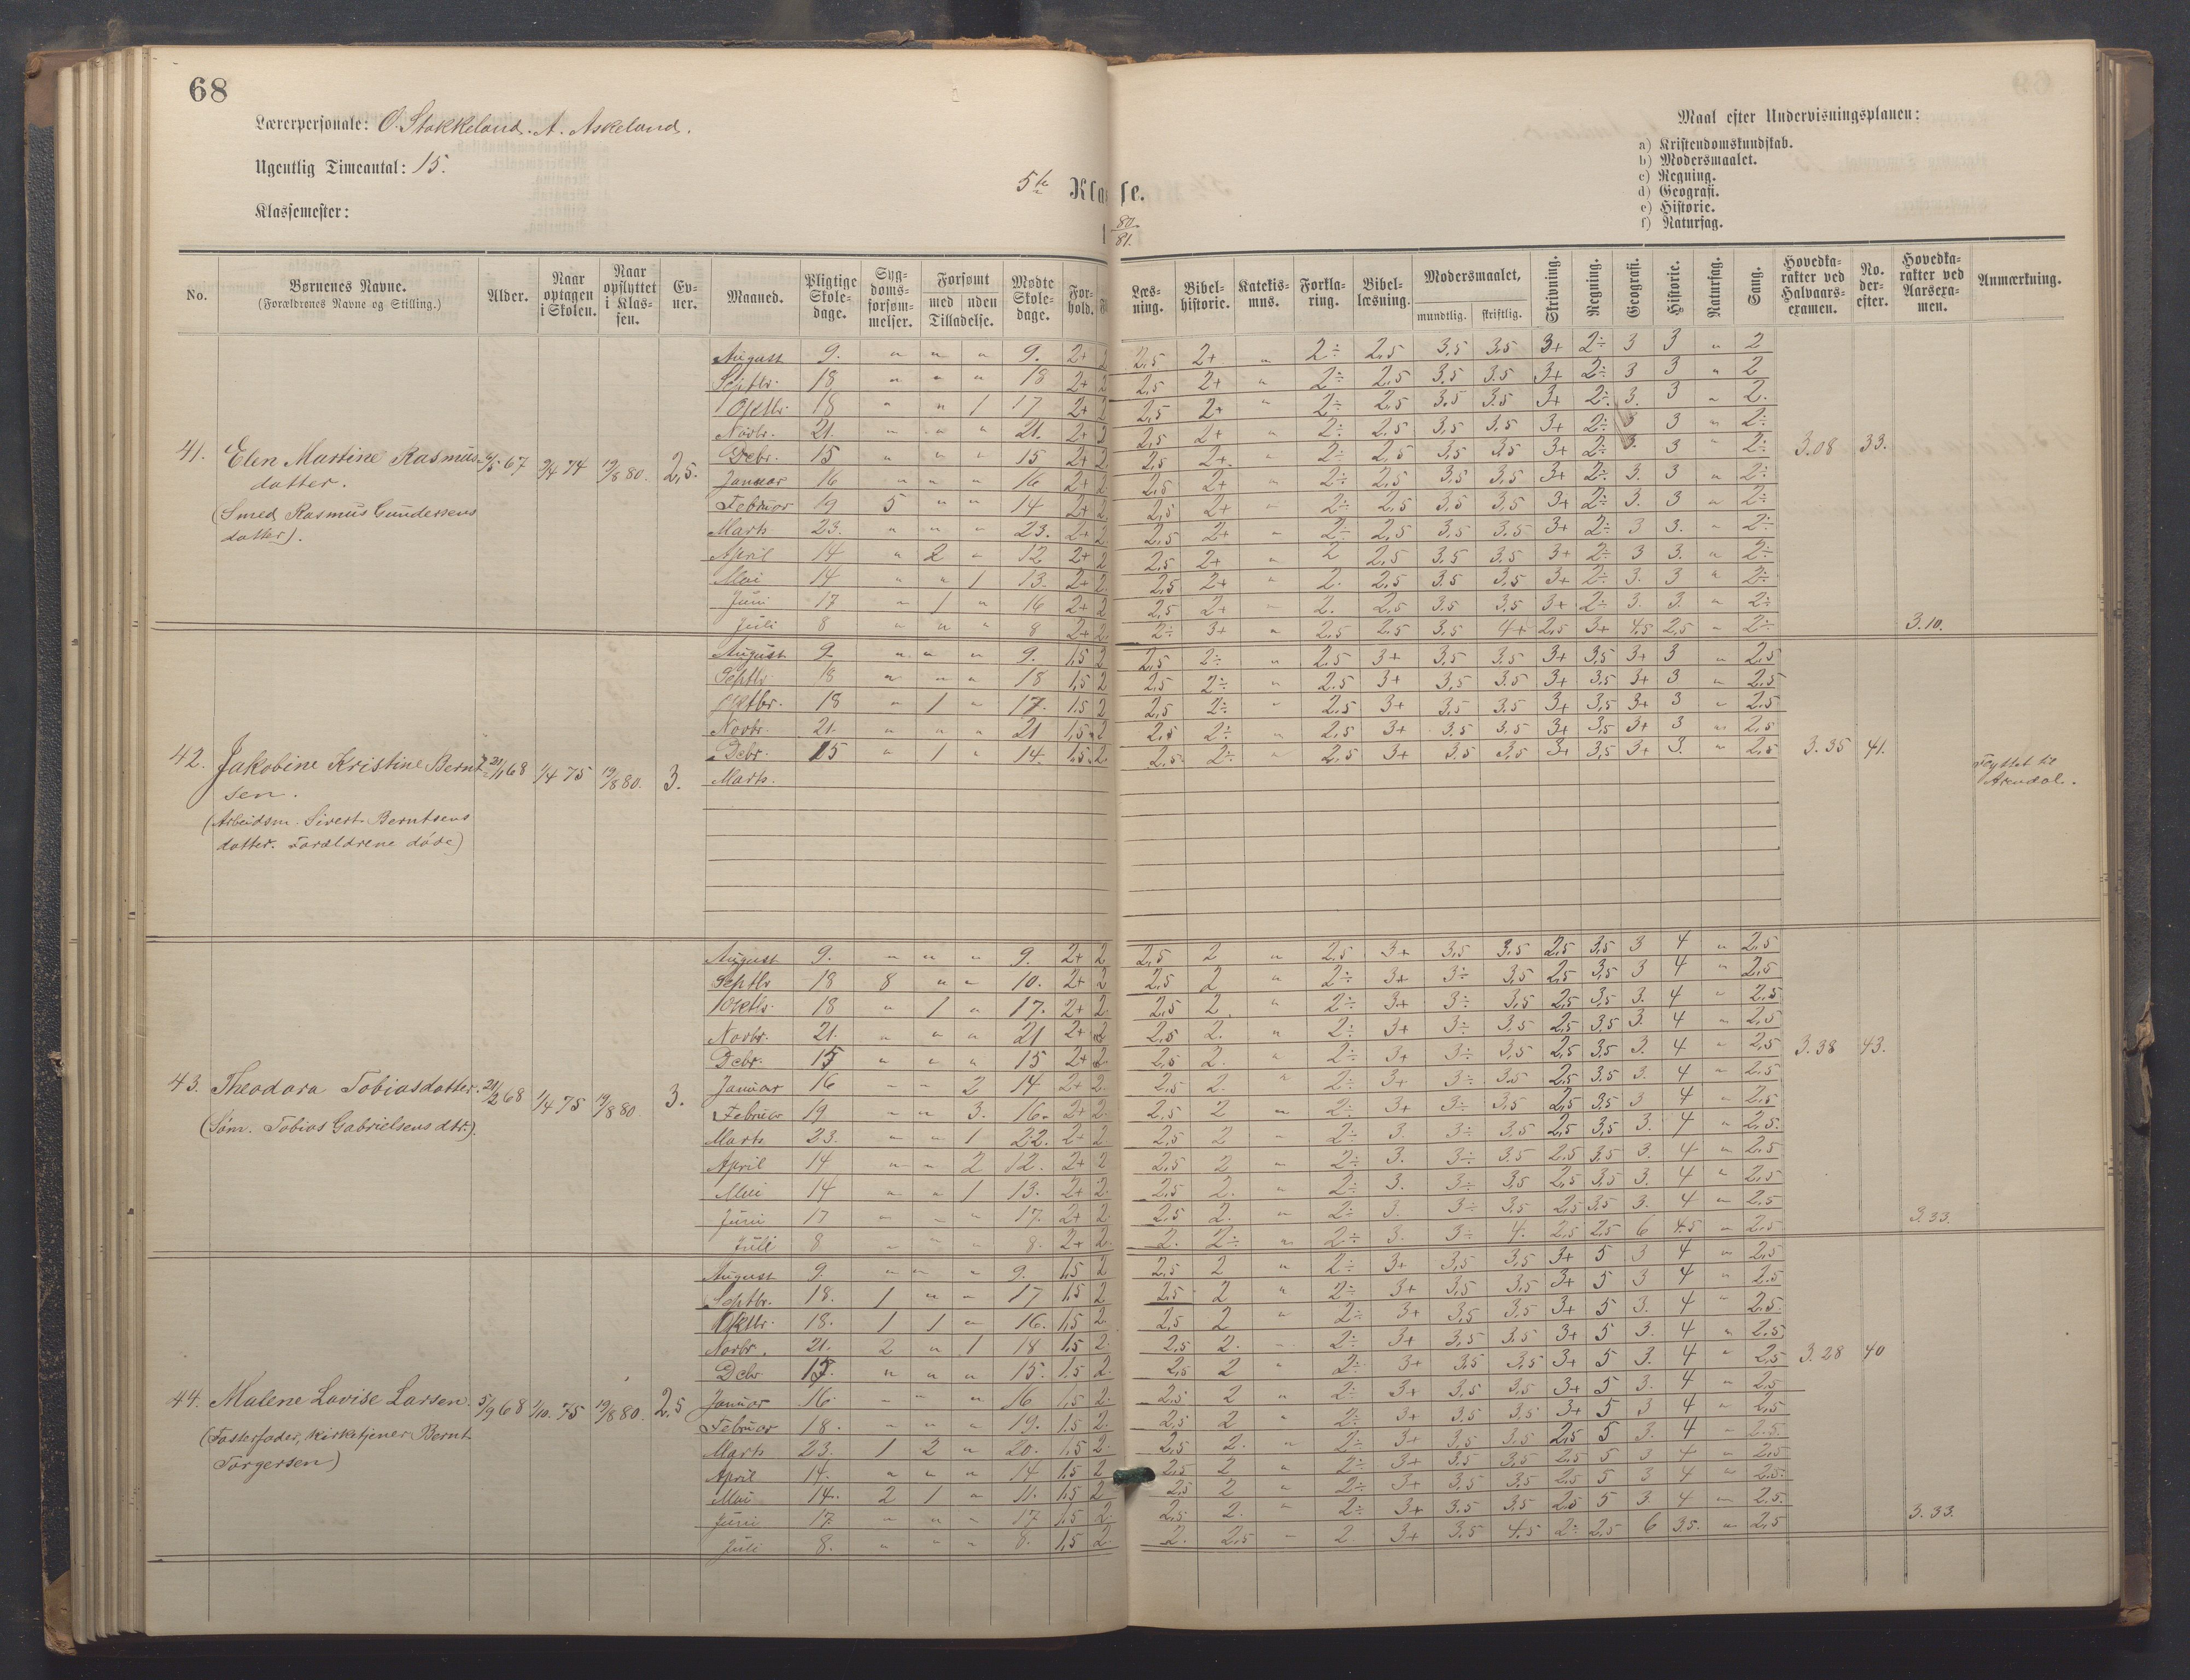 68
Lærerpersonale: O. Stokkeland. A. Askeland.
Ugentlig Timeantal: 15.
Klassemester:
5te Klasse.
80/81.
Maal efter Undervisningsplanen:
a) Kristendomskundskab.
b) Modersmaalet.
c) Regning.
d) Geografi.
e) Historie.
f) Naturfag.
No. Børnenes Navne. (Forældrenes Navne og Stilling.) Alder. Naar optagen i Skolen. Naar opflyttet i Klassen. Evner. Maaned. Pligtige Skoledage. Sygdomsforsømmelser. Forsømt med uden Tilladelse. Mødte Skoledage. Forhold. Læsning. Bibelhistorie. Katekismus. Forklaring. Bibellæsning. Modersmaalet, mundtlig. skriftlig. Skrivning. Regning. Geografi. Historie. Naturfag. Sang. Hovedkarakter ved Halvaarsexamen. No. derefter. Hovedkarakter ved Aarsexamen. Anmærkning.
August 9. " " " 9. 2+ 2 2,5 2+ " 2÷ 2,5 3,5 3,5 3+ 2÷ 3 3 " 2
Septbr. 18 " " " 18 2+ 2 2,5 2+ " 2÷ 2,5 3,5 3.5 3+ 2÷ 3 3 " 2
Oktbr. 18 " " 1 17 2+ 2 2,5 2+ " 2÷ 2,5 3,5 3.5 3+ 2÷ 3. 3 " 2.
Novbr. 21. " " " 21. 2+ 2 2,5 2+ " 2÷ 2,5 3,5 3,5 3+ 2÷ 3 3 " 2÷
41. Elen Martine Rasmus- 67 9/4 74 19/8 80. 2,5. Debr. 15 " " " 15 2+ 2 2,5 2+ " 2÷ 2,5 3,5 3,5 3+ 2÷ 3. 3 " 2÷ 3.08 33.
datter. Januar 16 " " " 16 2+ 2 2,5 2+ " 2÷ 2,5 3,5 3,5 3+ 2÷ 3. 3 " 2÷
(Smed Rasmus Gundersens Februar 19 5 " " 14 2+ 2 2,5 2+ " 2÷ 2,5 3,5 3,5 3+ 2÷ 3. 3 " 2÷
datter). Marts 23. " " " 23. 2+ 2 2,5 2+ " 2÷ 2,5 3,5 3.5 3+ 2÷ 3 3. " 2÷
April 14 " 2 " 12 2+ 2 2,5 2+ " 2 2,5 3,5 3,5 3+ 2÷ 3 3. " 2÷
Mai 14 " " 1 13. 2+ 2 2,5 2+ " 2. 2,5 3.5 3,5 3+ 2÷ 3. 3 " 2÷
Juni 17 " 1 " 16 2+ 2 2,5 2+ " 2. 2,5 3,5 3,5 3+ 2÷ 3. 3. " 2÷
Juli 8 " " " 8 2+ 2. 2÷ 3+ " 2,5 2,5 3,5 4+ 2,5 3+ 4,5 2,5 " 2÷ 3.10.
August 9. " " " 9. 1,5 2 2,5 2÷ " 2,5 3+ 3,5 3,5 3+ 3,5 3+ 3 " 2,5
Septbr 18 " " " 18 1,5 2 2,5 2÷ " 2.5 3+ 3,5 3.5 3+ 3,5 3+ 3 " 2,5
Oktbr. 18 " 1 " 17. 1.5 2 2,5 2÷ " 2,5 3+ 3,5 3.5 3+ 3,5 3+ 3 " 2,5
Novbr. 21. " " " 21 1,5 2 2,5 2÷ " 2,5 3+ 3.5 3,5 3+ 3,5 3+ 3 " 2,5
42. Jakobine Kristine Bernt- 21/1 68 1/4 75 19/8 80. 3. Debr. 15 " 1 " 14. 1,5 2. 2,5 2÷ " 2,5 3+ 3,5 3,5 3+ 3,5 3+ 3. " 2,5 3.35 41. Flyttet til
sen. Marts. Arendal.
(Arbeidsm. Sivert Berntsens
datter. Forældrene døde)
August 9. " " " 9. 2+ 2 2,5 2 " 2,5 3+ 3,5 3,5 2,5 3,5 3 4 " 2,5
Septbr 18 8 " " 10. 2+ 2 2,5 2 " 2÷ 3+ 3÷ 3,5 2,5 3,5 3 4 " 2,5
Oktbr. 18 " 1 " 17. 2+ 2 2,5 2. " 2÷ 3+ 3÷ 3,5 2,5 3,5 3. 4 " 2,5
Novbr. 21. " " " 21 2+ 2 2,5 2. " 2÷ 3+ 3÷ 3.5 2,5 3,5 3. 4 " 2,5
Debr. 15 " " " 15 2+ 2. 2,5 2. " 2÷ 3+ 3÷ 3,5 2,5 3,5 3. 4 " 2,5 3.38 43.
43. Theodora Tobiasdatter. 21/2 68 1/4 75 19/8 80 3. Januar 16 " " 2 14 2+ 2. 2,5 2. " 2÷ 3+ 3÷ 3.5 2,5 3.5 3. 4 " 2.5
Februar 19 " " 3. 16. 2+ 2. 2,5 2 " 2÷ 3+ 3÷ 3,5 2,5 3,5 3 4 " 2,5
(Søm. Tobias Gabrielsens dtr.). Marts 23. " " 1 22. 2+ 2. 2,5 2 " 2÷ 3. 3÷ 3,5 2,5 3,5 3. 4 " 2,5.
April 14 " " 2 12. 2+ 2 2,5 2 " 2÷ 3. 3÷ 3.5 2,5 3.5 3. 4 " 2,5
Mai 14 " " 1 13. 2+ 2. 2,5 2. " 2÷ 3. 3÷ 3,5 2,5 3,5 3. 4 " 2,5
Juni 17 " " " 17. 2+ 2. 2,5 2. " 2÷ 3. 3÷ 3,5 2,5 3,5 3. 4 " 2,5
Juli 8 " " " 8. 2+ 2. 2. 2÷ " 2÷ 3. 3÷ 4. 2,5 2,5 6 4.5 " 2,5 3.33.
August 9. " " " 9. 1,5 2 2,5 2 " 2÷ 3+ 3,5 3,5 3+ 5 3 4 " 2,5
Septbr. 18. 1 " " 17 1,5 2 2,5 2 " 2÷ 3+ 3,5 3,5 3+ 5 3 4 " 2.5
Oktbr. 18. 1 1 " 16. 1,5 2. 2,5 2 " 2÷ 3+ 3,5 3,5 3+ 5 3. 4 " 2.5.
Novbr. 21. 2 " 1 18 1,5 2. 2,5 2. " 2÷ 3+ 3,5 3.5 3+ 5 3. 4 " 2,5
Debr 15. " " " 15. 1.5 2. 2,5 2 " 2÷ 3+ 3.5 3,5 3+ 5 3. 4 " 2,5 3.28 40
44. Malene Lovise Larsen. 5/9 68 1/10. 75 19/8 80. 2,5 Januar 16. " " " 16 1,5 2. 2,5 2 " 2÷ 3+ 3,5 3,5 3+ 5 3. 4 " 2,5
(Fosterfader, kirketjener Bernt Februar 18. " " " 19. 1.5 2. 2,5 2 " 2÷ 3+ 3.5 3,5 3+ 5 3 4 " 2,5
Torgersen) Marts 23. 1 2 " 20. 1,5 2. 2,5 2. " 2÷ 3+ 3,5 3,5 2,5 5 3. 4 " 2.5.
April 14. " " " 14 1.5 2 2,5 2 " 2÷ 3+ 3,5 3,5 2,5 5 3 4 " 2,5
Mai 14. 2 1 " 11. 1,5 2 2,5 2 " 2÷ 3+ 3,5 3,5 2,5 5 3 4 " 2,5.
Juni 17. " " " 17 1,5 2. 2,5 2. " 2÷ 3+ 3.5 3,5 2,5 5 3. 4 " 2,5.
Juli 8. " " " 8. 1,5 2. 2. 2,5 " 2 3+ 3,5 4.5 2÷ 2,5 6 3.5. " 2,5 3.33.